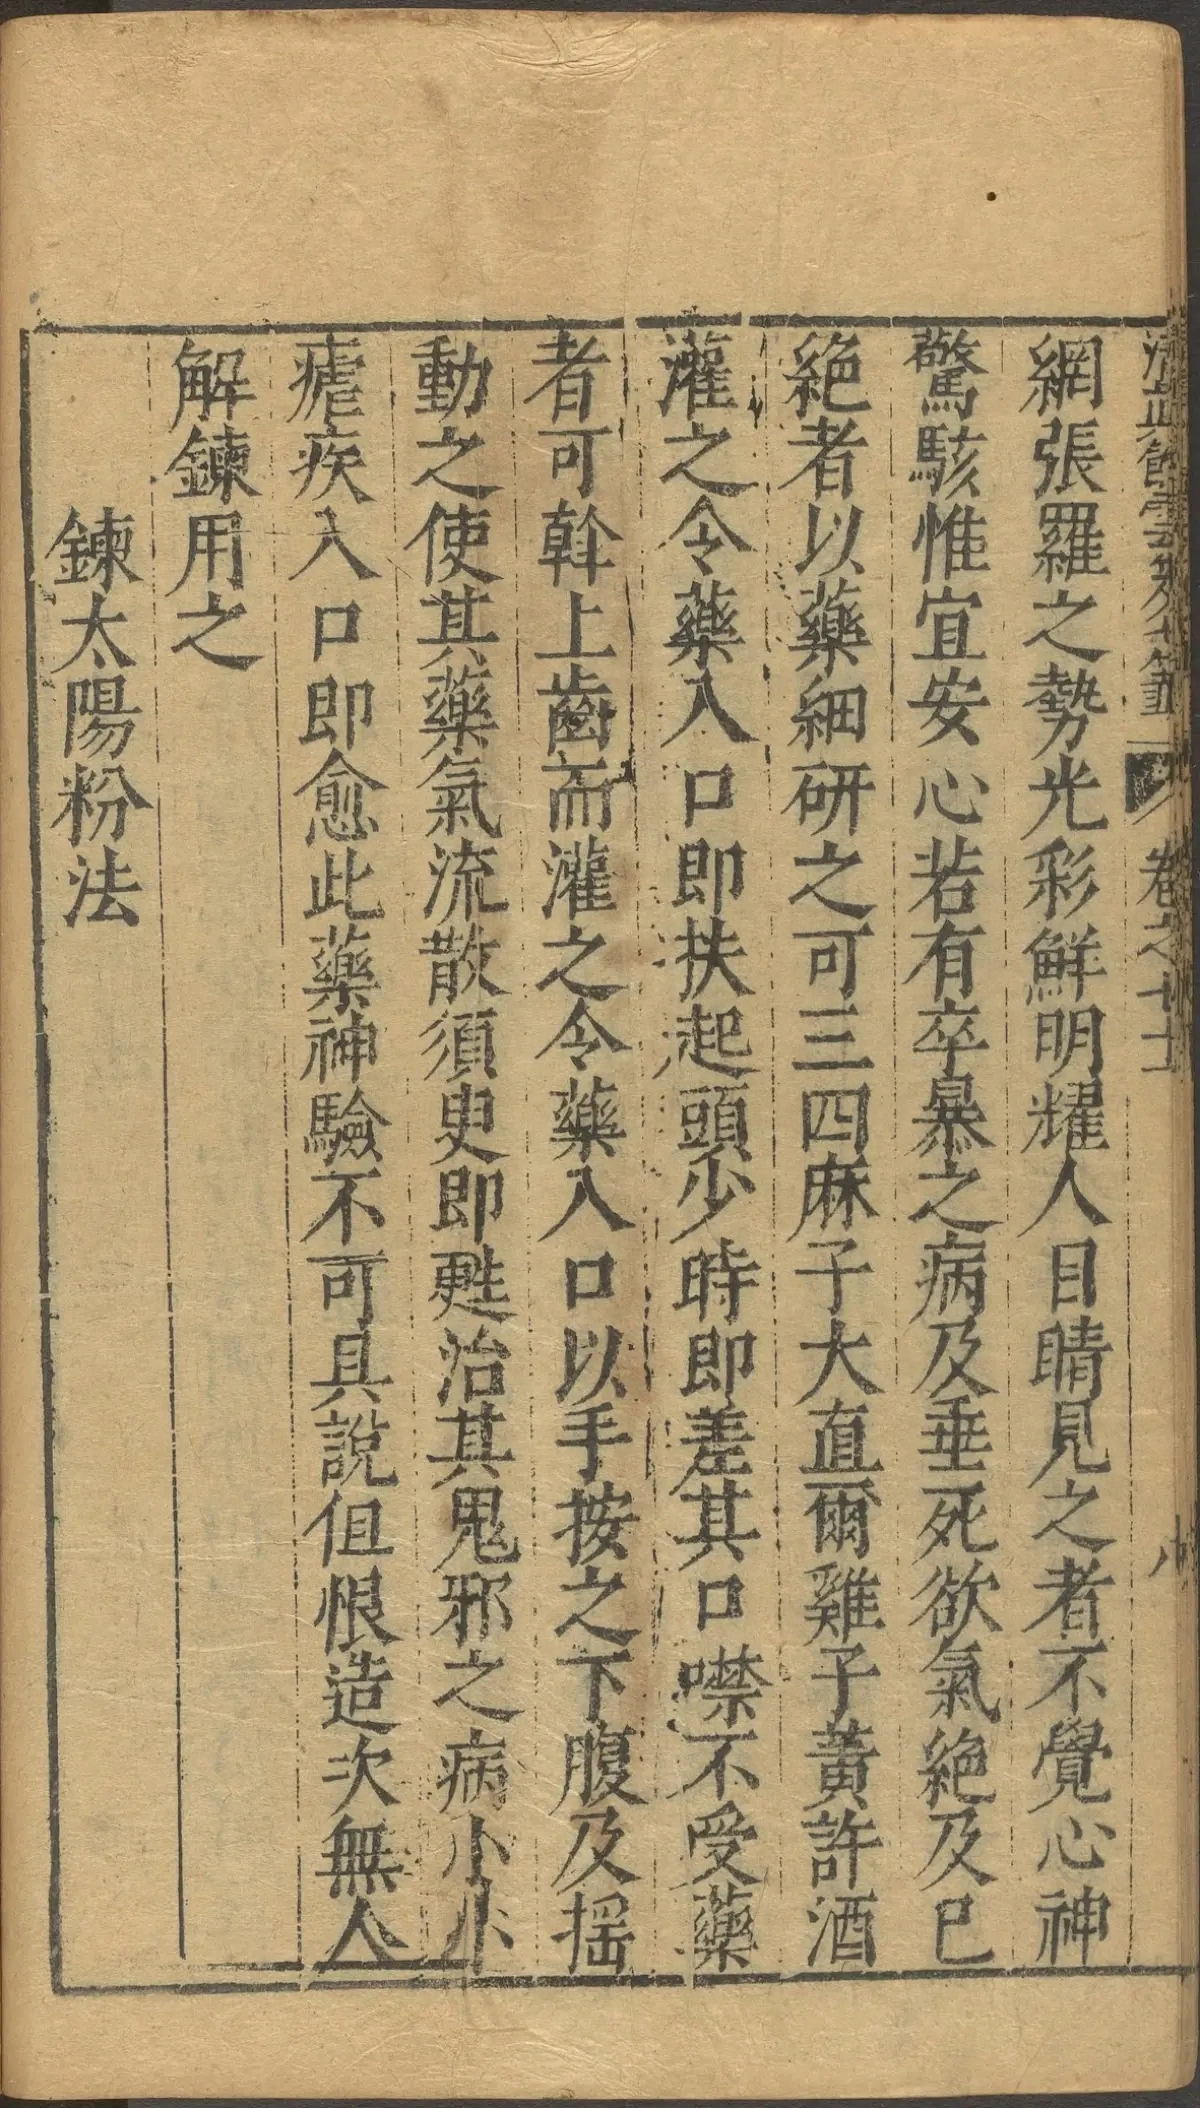 卷之七十一
八
網張羅之勢光彩鮮明耀人目睛見之者不覺心神
驚駭惟宜安心若有卒暴之病及垂死欲氣絕及已
絕者以藥細研之可三四麻子大直爾雞子黃許酒
灌之令藥入口即扶起頭少時即差其口噤不受藥
者可斡上齒而灌之令藥入口以手按之下腹及摇
動之使其藥氣流散須臾即甦治其鬼邪之病小小
瘧疾入口即愈此藥神驗不可具說但恨造次無人
解鍊用之
鍊太陽粉法